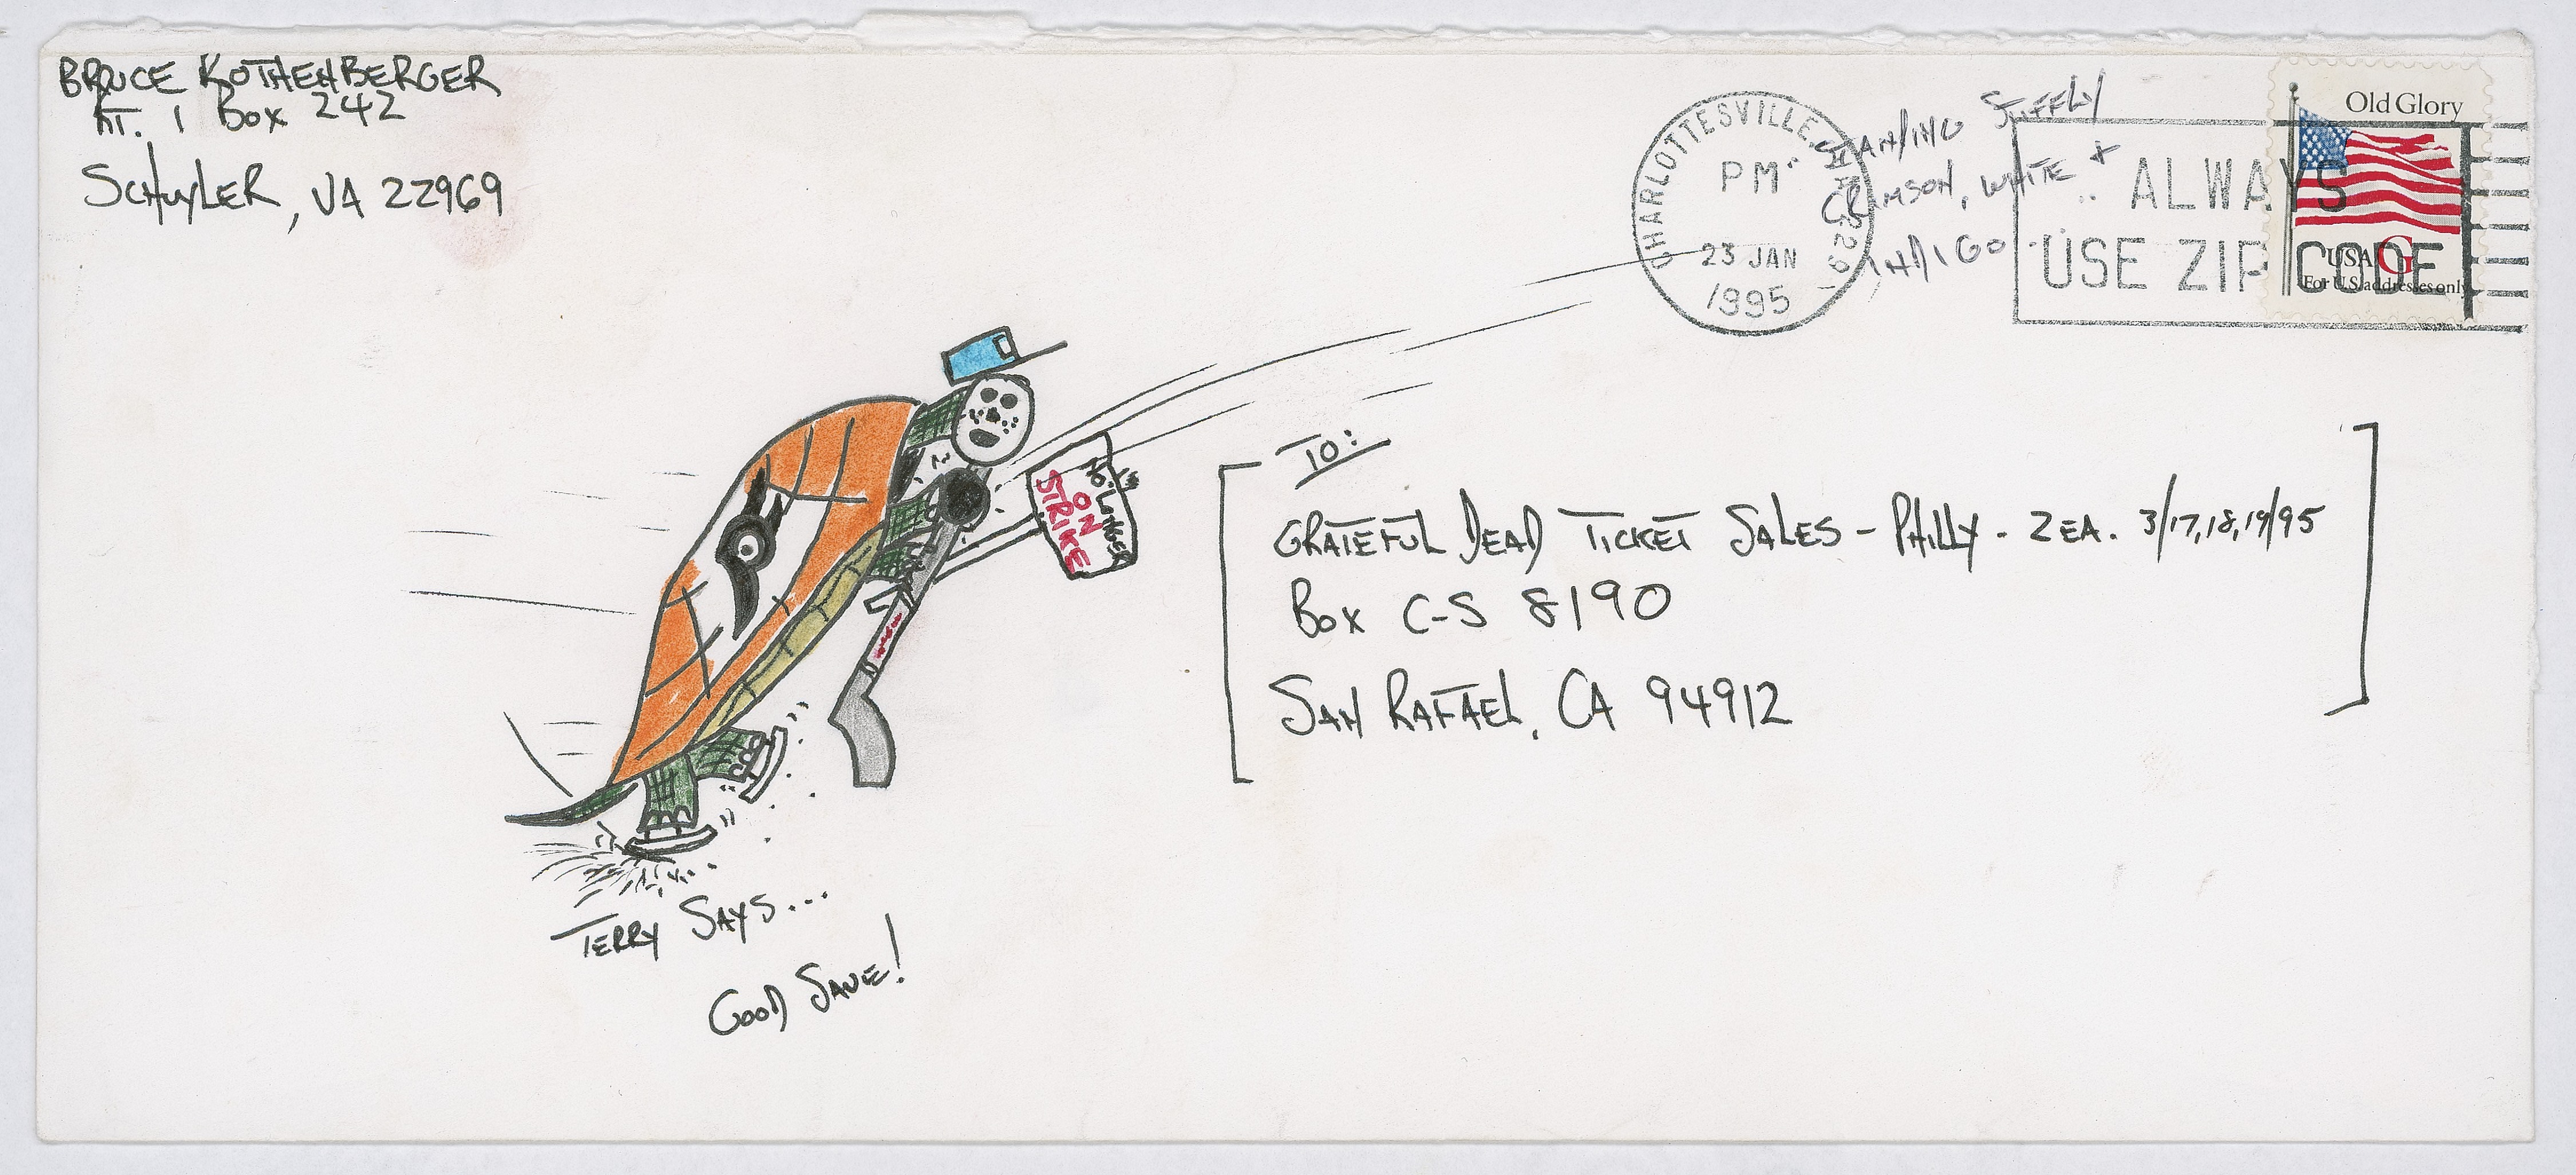 BRUCE ROTHENBERGER
RT. 1 BOX 242
SCHUYLER, VA 22969
CHARLOTTESVILLE, VA 229
PM
23 JAN
1995
STANDING STIFFLY
CRIMSON, WHITE +
INDIGO
ALWAYS
USE ZIP CODE
Old Glory
USA G
For U.S. addresses only
NO LONGER
ON
STRIKE
TO:
GRATEFUL DEAD TICKET SALES - PHILLY - 2 EA. 3/17,18,19/95
BOX C-S 8190
SAN RAFAEL, CA 94912
TERRY SAYS...
GOOD SAVE!